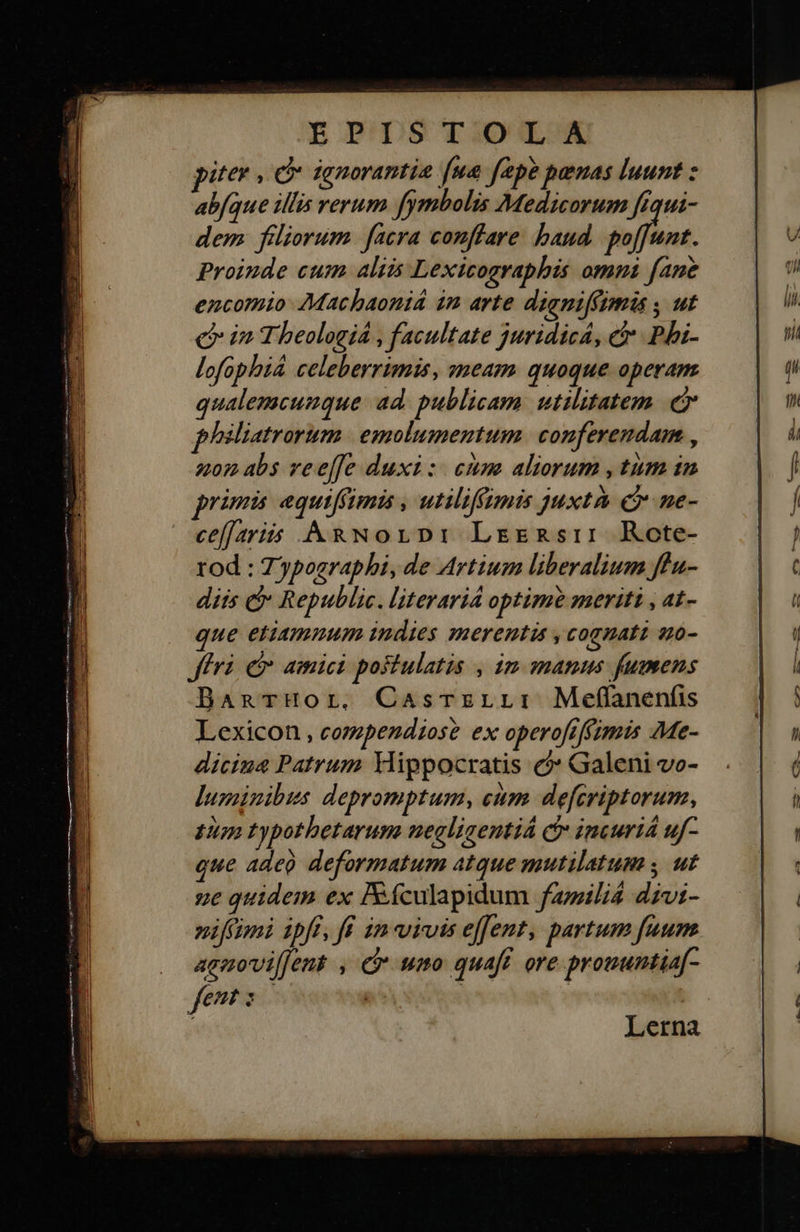 EPISTOLA
piter, & ignorantiæ ſuæ ſæpè pœnas luunt:
abſque illis rerum ſymbolis Medicorum ſiqui-
dem filiorum ſacra conſtare haud poſſunt.
Proinde cum aliis Lexicographis omni ſanè
encomio Machaoniâ in arte digniſsimis, ut
& in Theologiâ, facultate juridicâ, & Phi-
loſophiâ celeberrimis, meam quoque operam
qualemcunque ad publicam utilitatem &
philiatrorum emolumentum conferendam,
non abs re eſſe duxi: cùm aliorum, tùm in
primis æquiſsimis, utiliſsimis juxtà & ne-
ceſſariis ARNOLDI LEERSII Rote-
rod: Typographi, de Artium liberalium ſtu-
diis & Republic. literariâ optimè meriti, at-
que etiamnum indies merentis, cognati no-
ſtri & amici poſtulatis, in manus ſumens
BARTHOL. CASTELLI Meſſanenſis
Lexicon, compendiosè ex operoſiſsimis Me-
dicinæ Patrum Hippocratis & Galeni vo-
luminibus depromptum, cùm deſcriptorum,
tùm typothetarum negligentiâ & incuriâ uſ-
que adeò deformatum atque mutilatum, ut
ne quidem ex Æſculapidum familiâ divi-
niſsimi ipſi, ſi in vivis eſſent, partum ſuum
agnoviſſent, & uno quaſi ore pronuntiaſ-
ſent:
Lerna